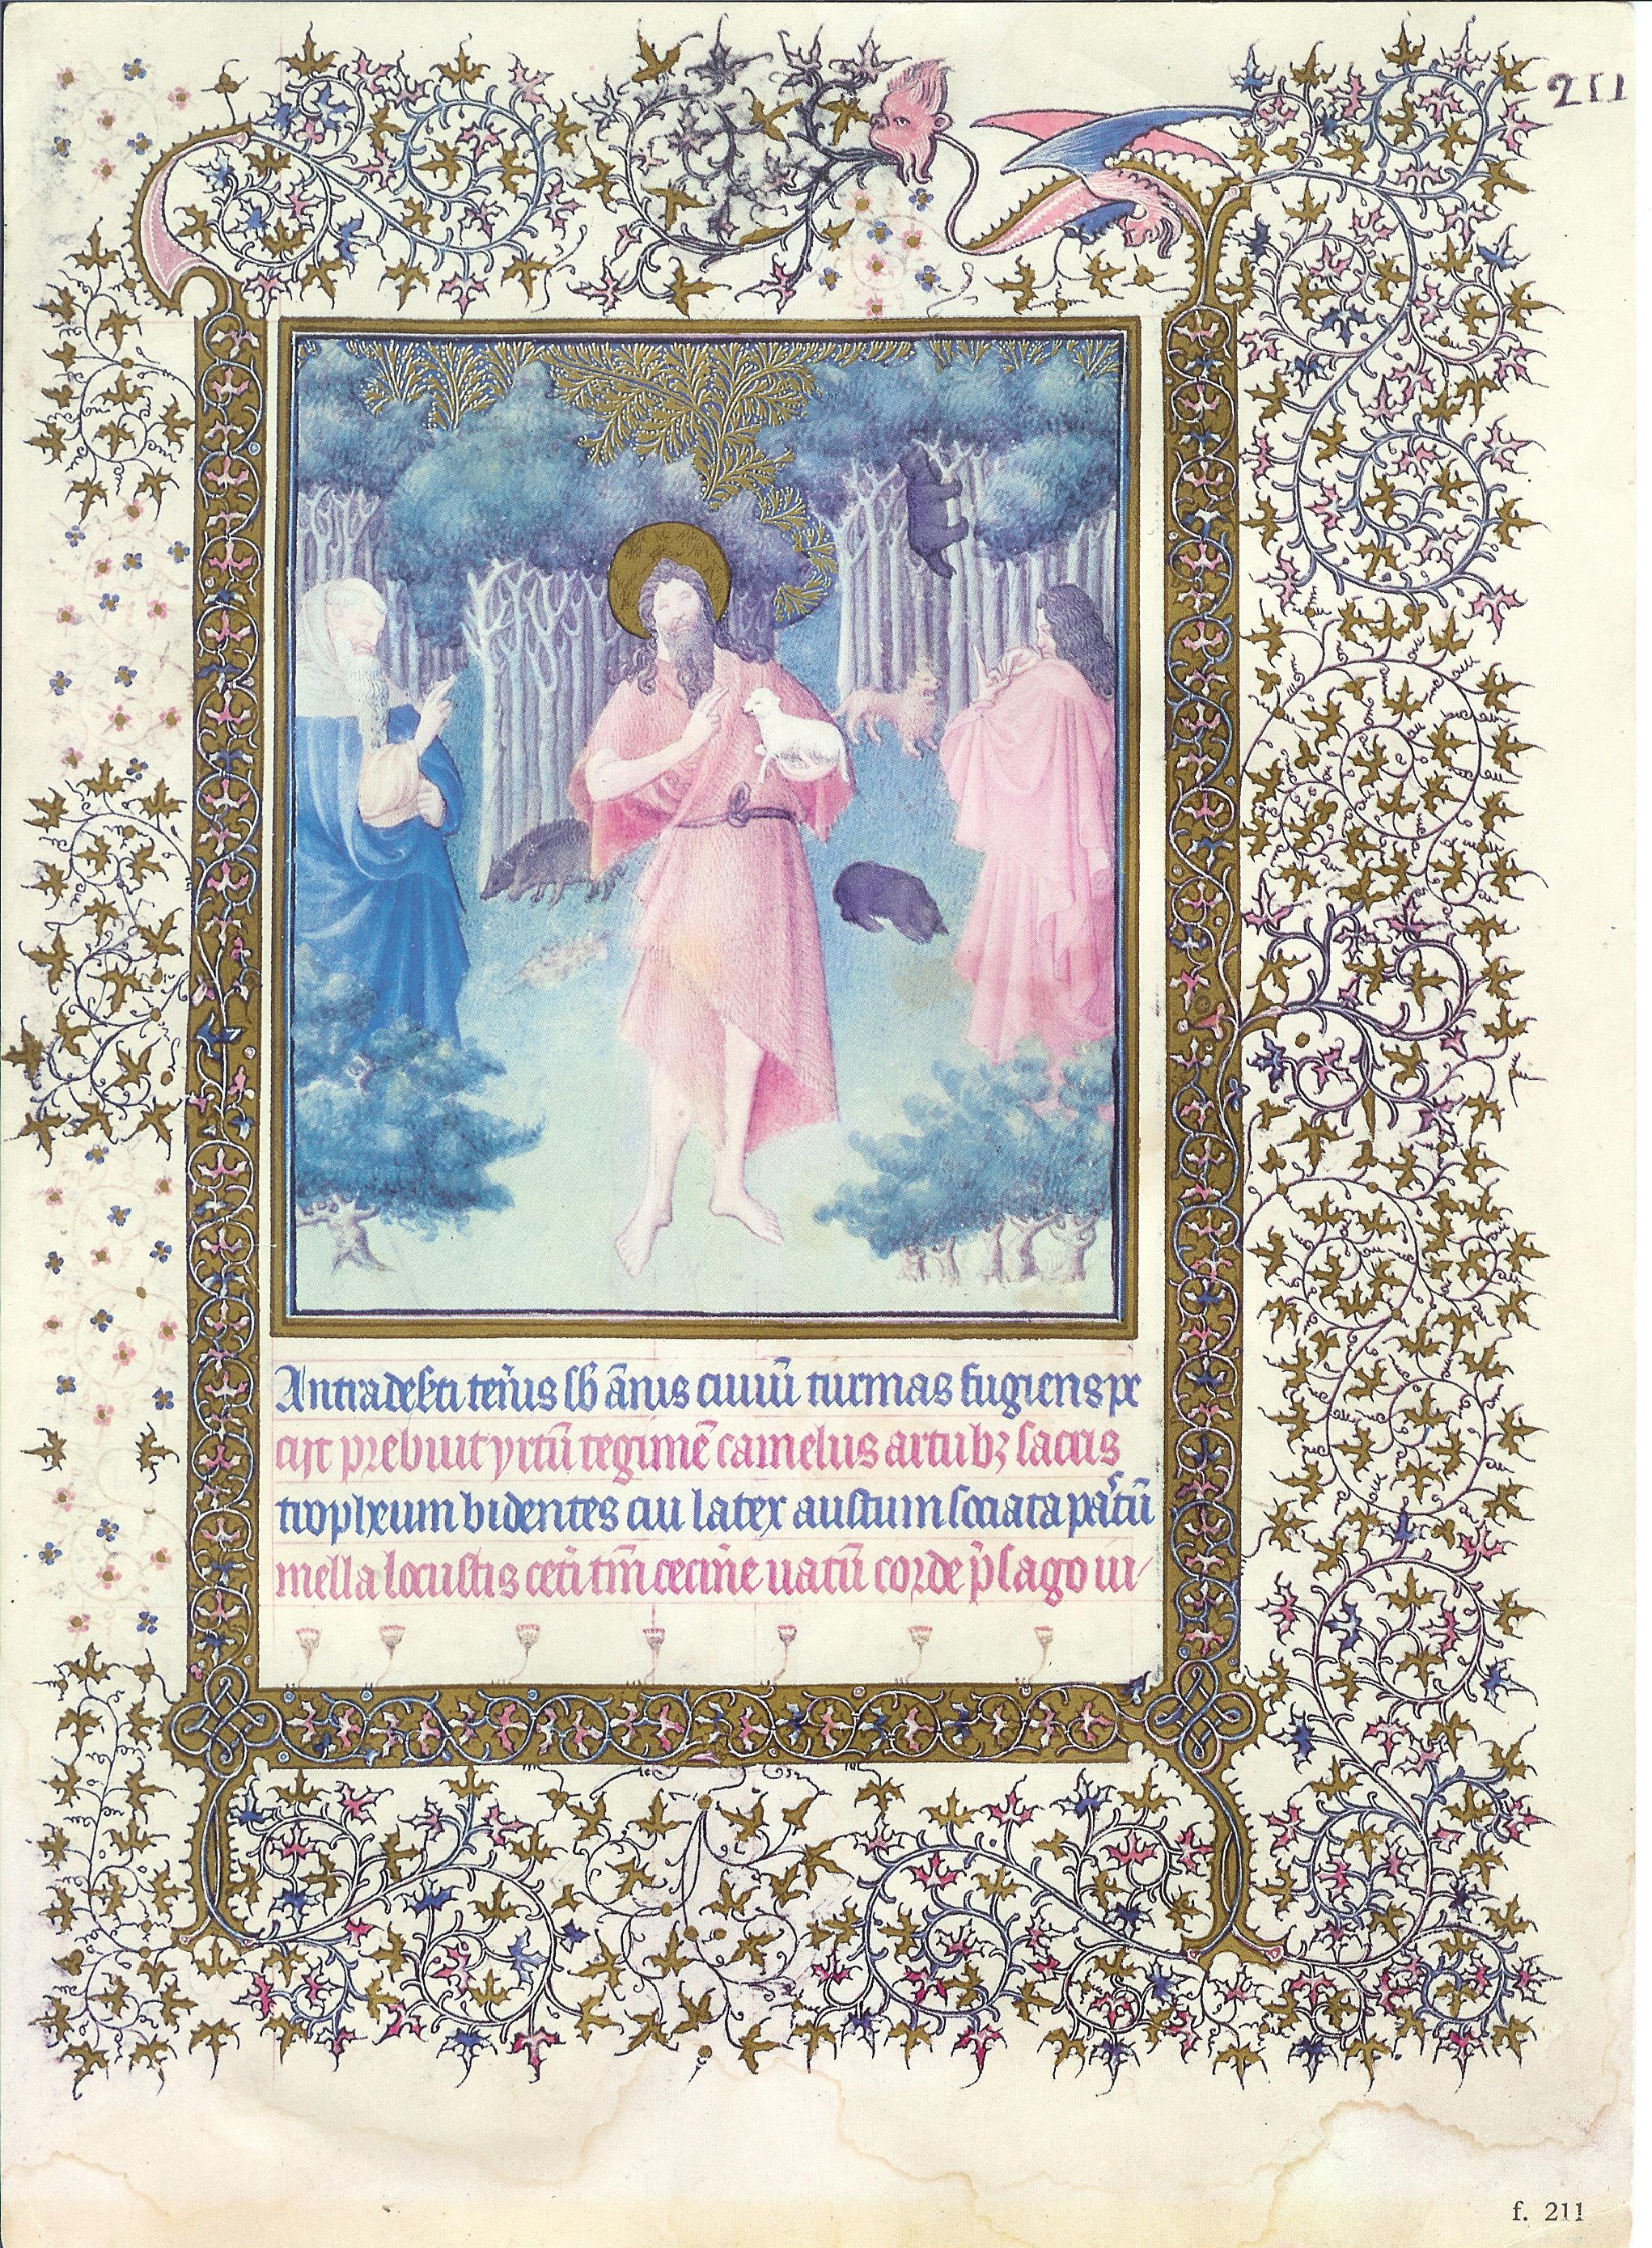 211
Antra deserti teñis sb ãnis ciuiũ turmas fugiens pe
prebuit yrtũ tegimẽ camelus artubꝫ sacris
tropheum bidentes cui latex austum sociata pastũ
mella locustis cet̃i tm̃ cecine uatũ corde p̃sago iu
f. 211